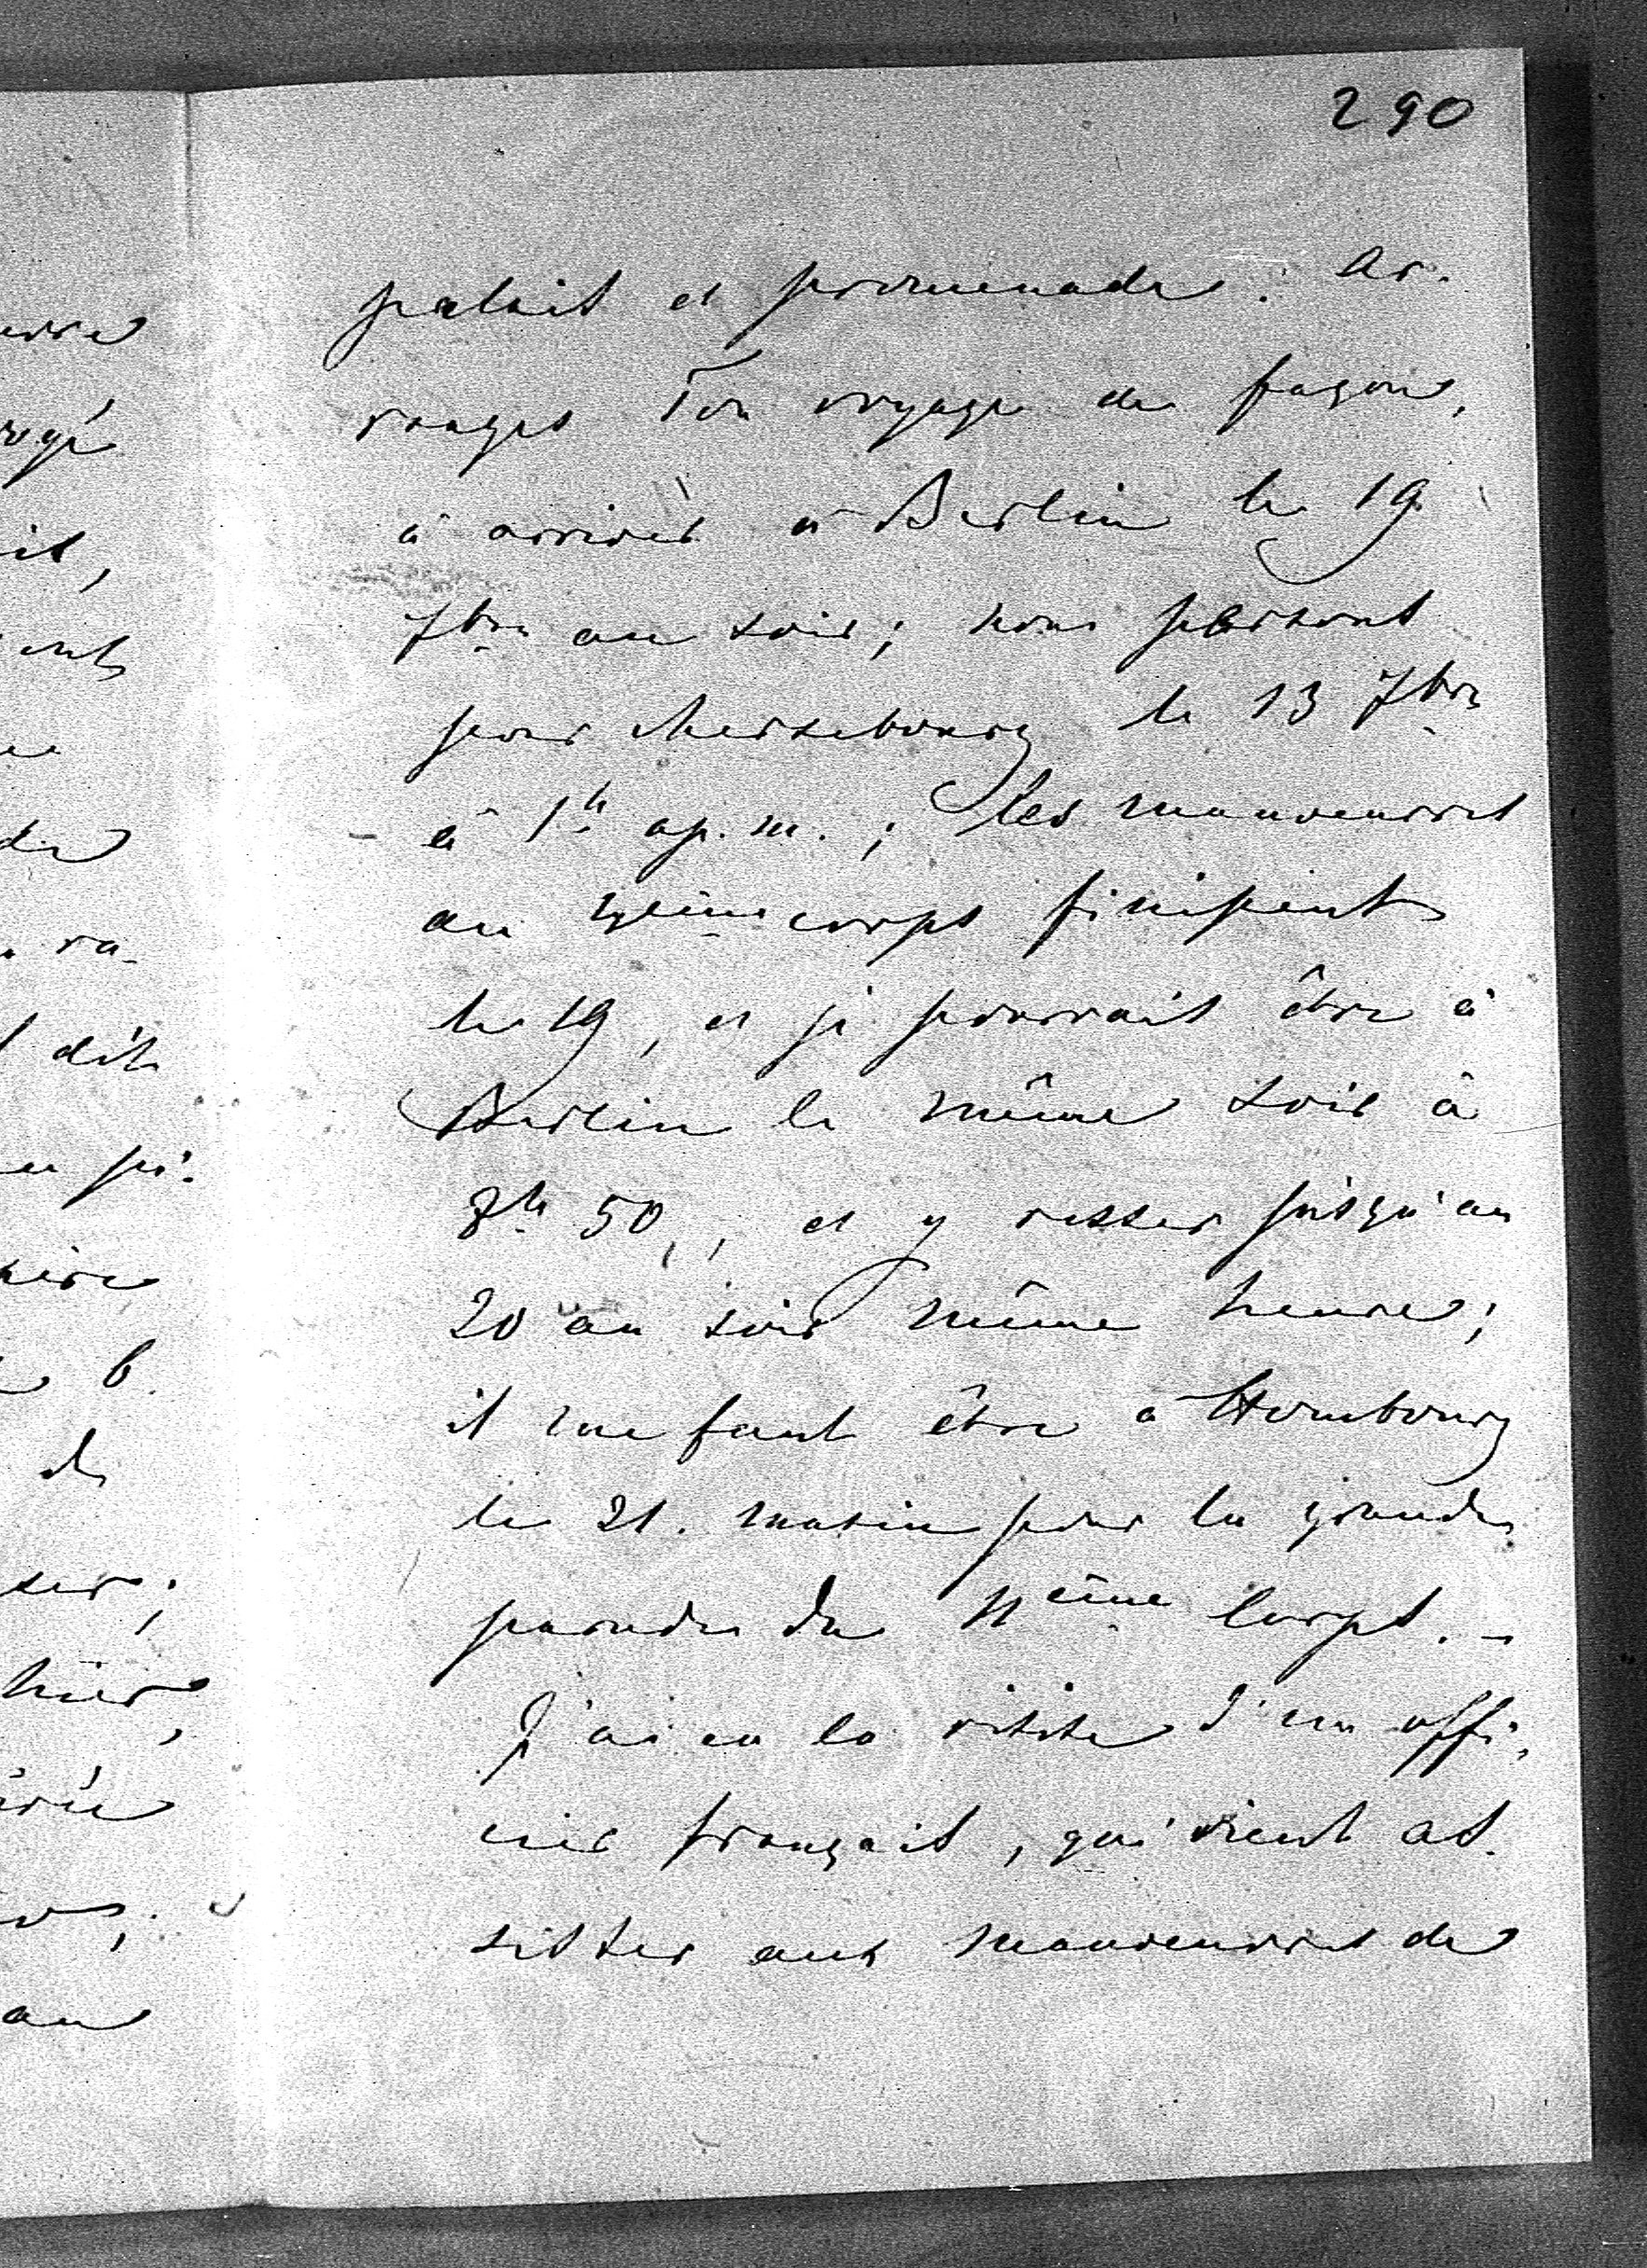 290
palais et promenade. Ar-
ranges Ton voyage de façon,
à arriver à Berlin le 19
7bre au soir; nous partons
pour Mersebourg le 13 7bre
à 1h ap. m.; les manoeuvres
du corps finissent
le 19, et je pourrais être à
Berlin le même soir à
8h 50, et y rester jusqu'au
20 au soir même heure;
il me faut être à Hombourg
le 21. matin pour la grande
parade du 11ème Corps. –
J'ai eu la visite d'un offi-
cier français, qui vient as-
sister aux manoeuvres de